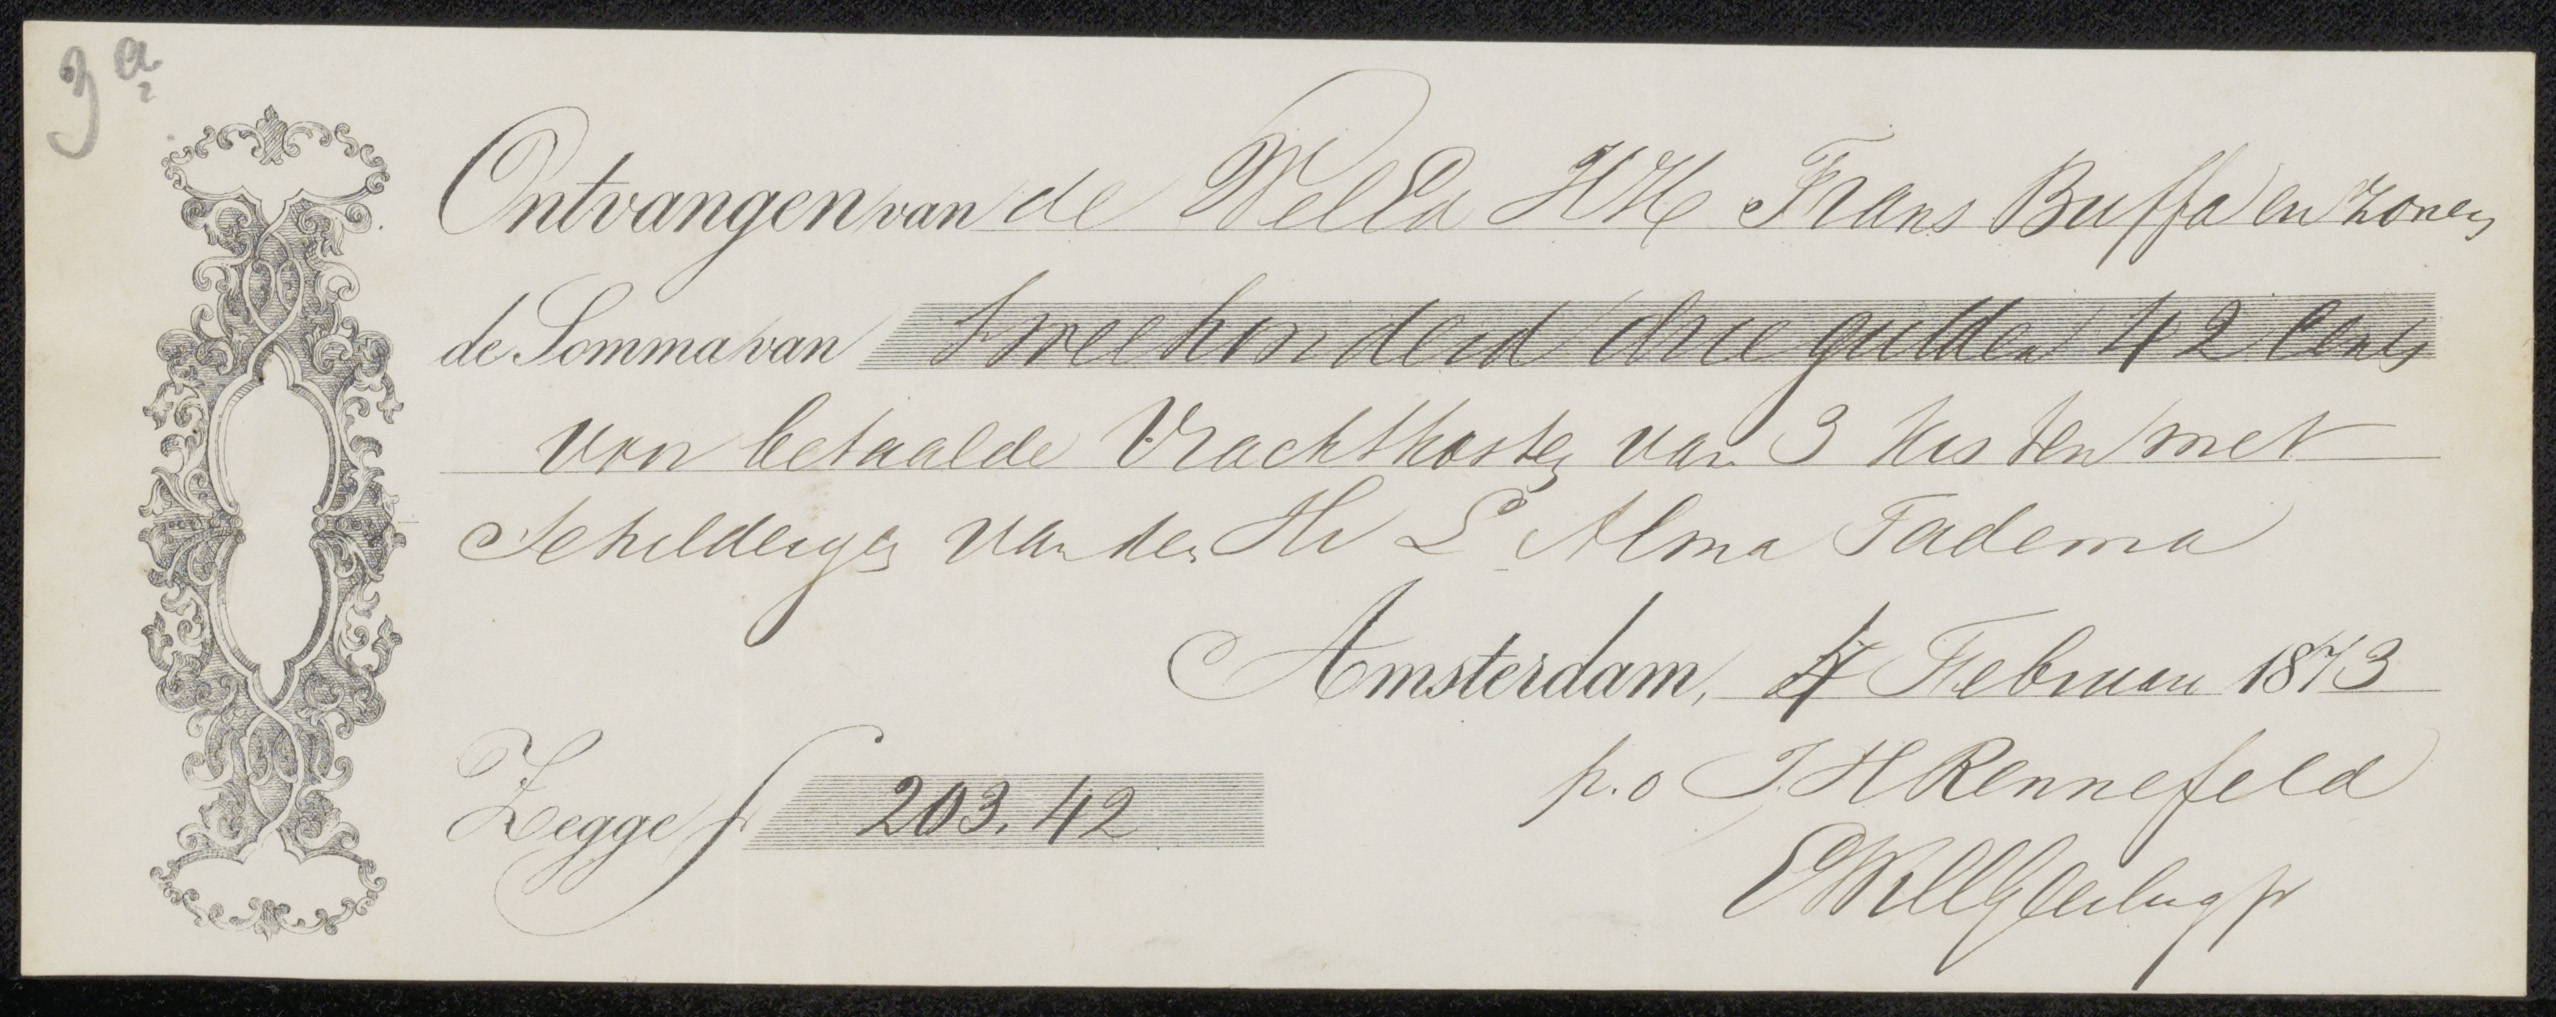 3a
2
Ontvangen van de WelEd HH Frans Buffa en Zonen
de Somma van Tweehonderd drie gulden 42 Cents
voor betaalde Vrachtkosten van 3 Kisten met
Schilderyen van den Hr L Alma Tadema
Amsterdam, 4 Februari 1873
Zegge f 203.42
p.o J H Rennefeld